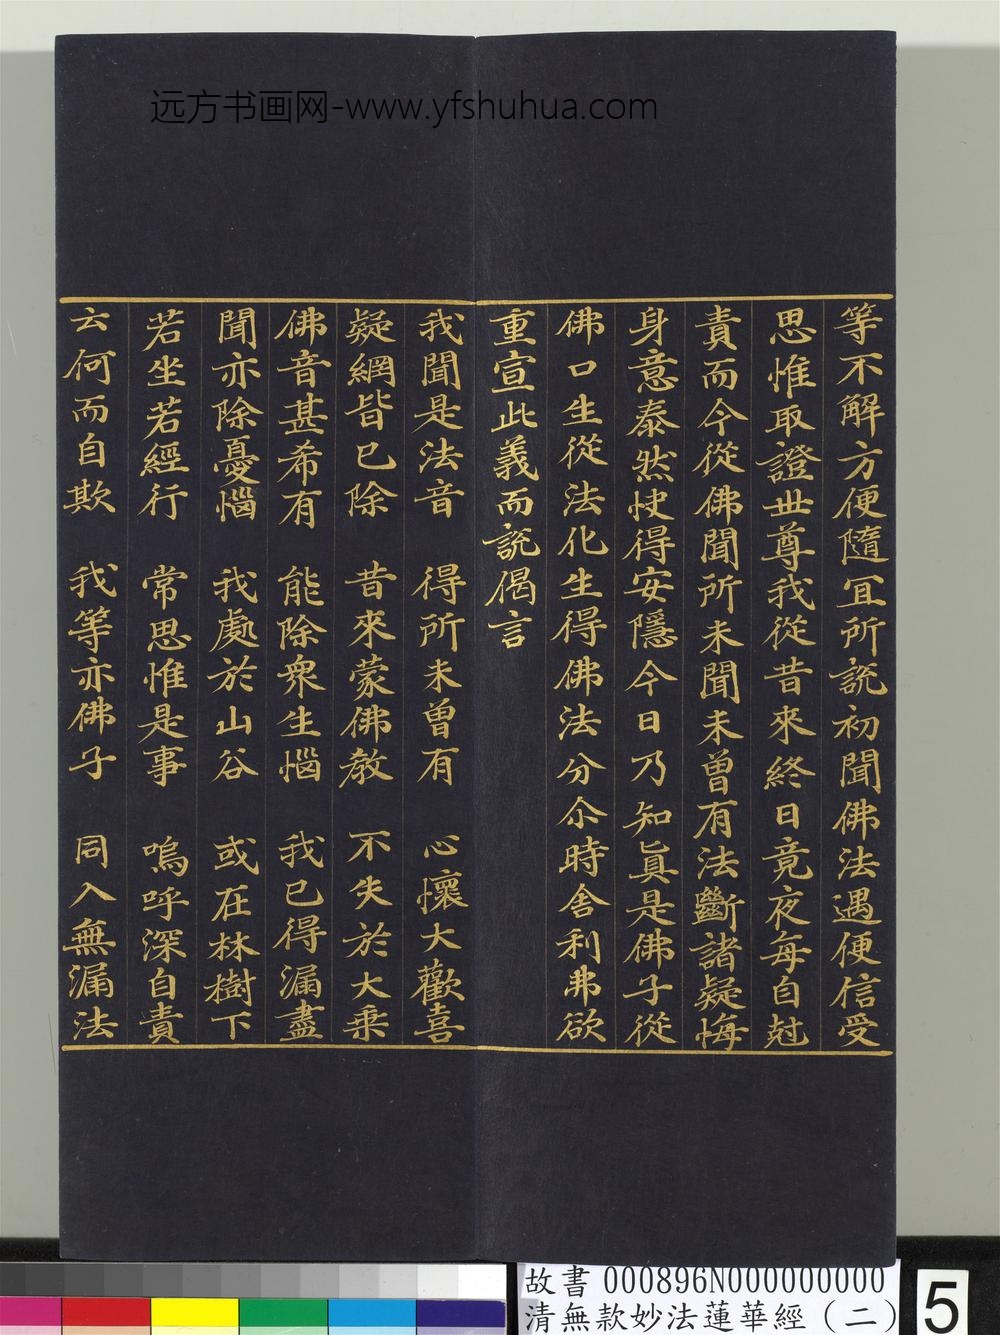 远方书画网-www.yfshuhua.com
等不解方便隨冝所說初聞佛法遇便信受
思惟取證世尊我從昔來終日竟夜每自尅
責而今從佛聞所未聞未曾有法斷諸疑悔
身意泰然快得安隱今日乃知真是佛子從
佛口生從法化生得佛法分尒時舍利弗欲
重宣此義而說偈言
我聞是法音　得所未曾有　心懷大歡喜
疑網皆已除　昔來蒙佛教　不失於大乘
佛音甚希有　能除衆生惱　我已得漏盡
聞亦除憂惱　我處於山谷　或在林樹下
若坐若經行　常思惟是事　嗚呼深自責
云何而自欺　我等亦佛子　同入無漏法
故書 000896N000000000
清無款妙法蓮華經(二)
5